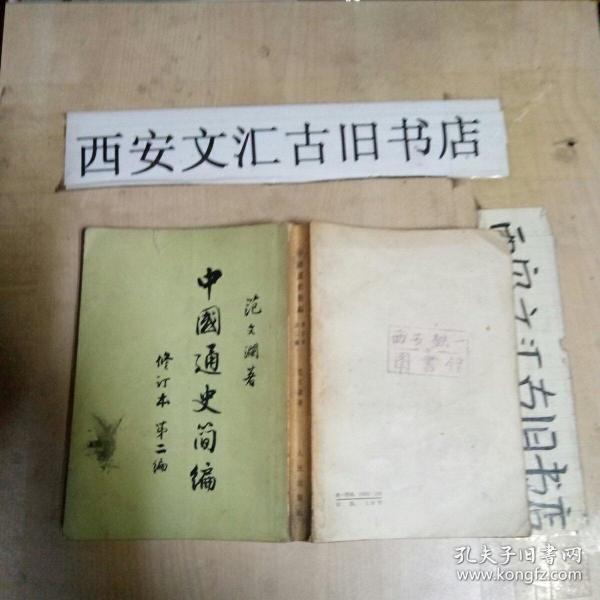 西安文汇古旧书店
中國通史简编
范文澜著
修订本 第二编
人民出版社
西安文汇古旧书店
孔夫子旧书网
www.kongfz.com